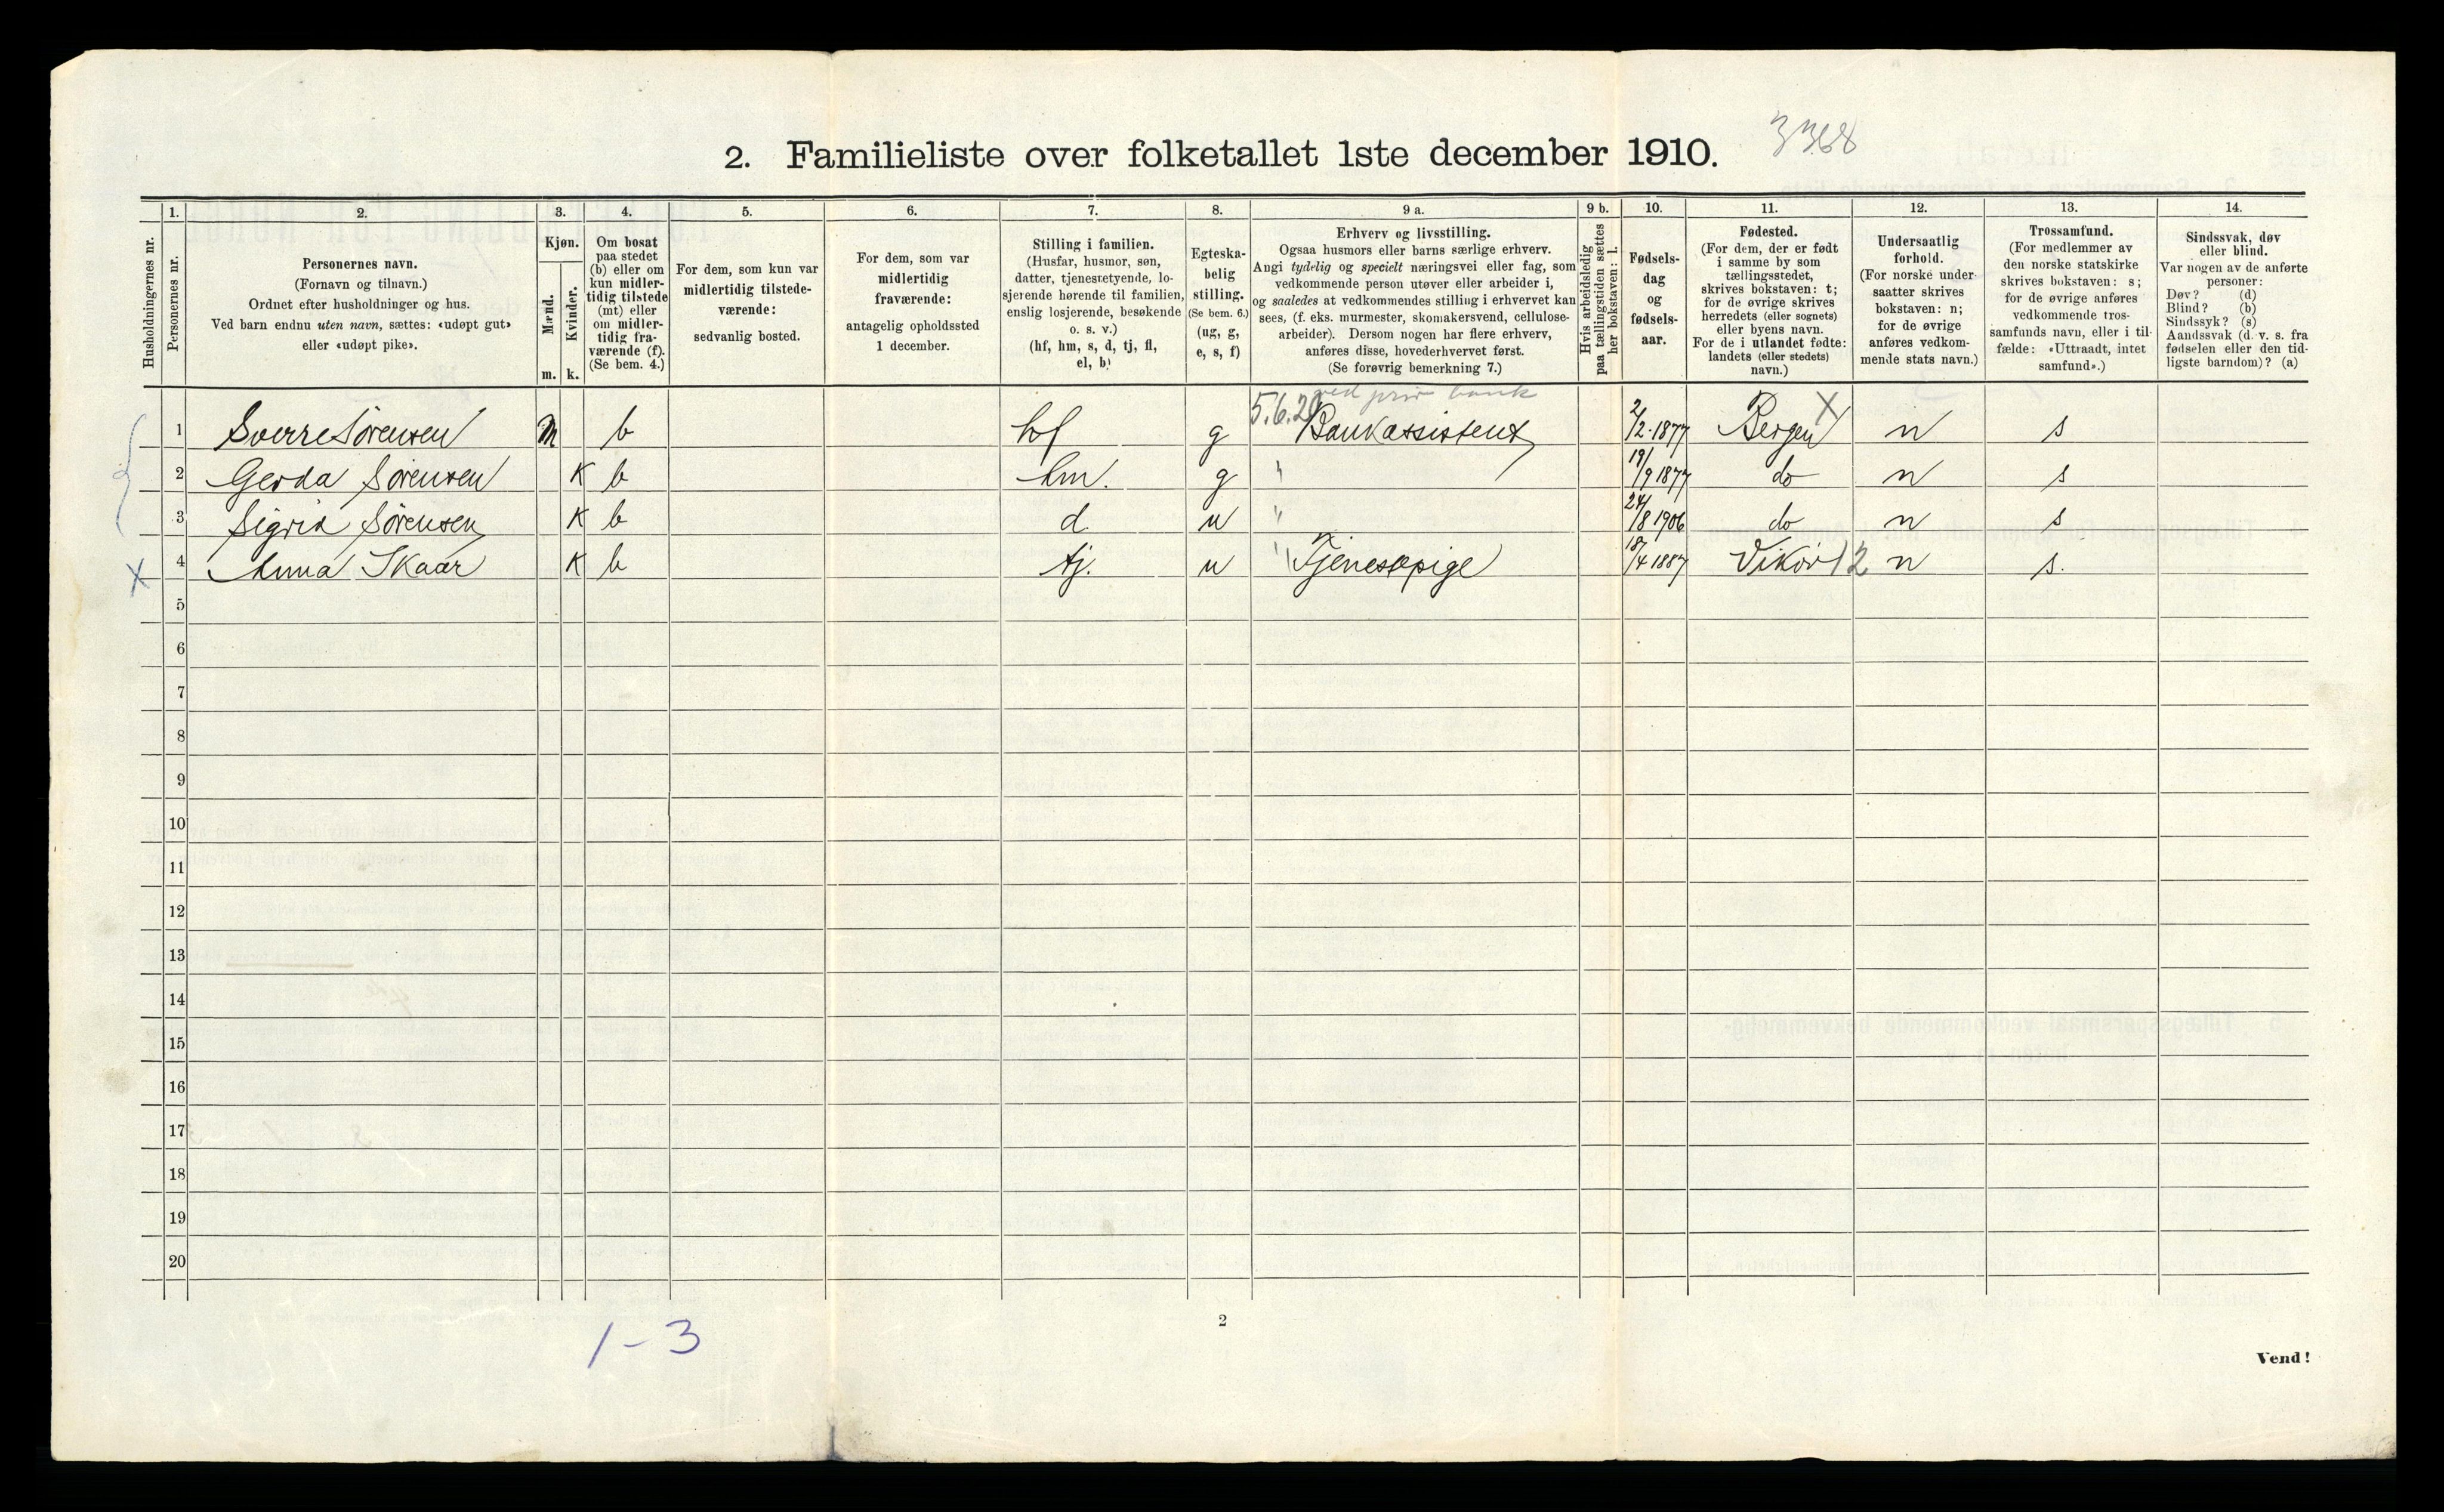 2. Familieliste over folketallet 1ste december 1910.
3368
Husholdningernes nr.
1.
Personernes nr.
2.
Personernes navn.
(Fornavn og tilnavn.)
Ordnet efter husholdninger og hus.
Ved barn endnu uten navn, sættes: «udøpt gut»
eller «udøpt pike».
3.
Kjøn.
Mænd.
Kvinder.
m.
k.
4.
Om bosat
paa stedet
(b) eller om
kun midler-
tidig tilstede
(mt) eller
om midler-
tidig fra-
værende (f).
(Se bem. 4.)
5.
For dem, som kun var
midlertidig tilstede-
værende:
sedvanlig bosted.
6.
For dem, som var
midlertidig
fraværende:
antagelig opholdssted
1 december.
7.
Stilling i familien.
(Husfar, husmor, søn,
datter, tjenestetyende, lo-
sjerende hørende til familien,
enslig losjerende, besøkende
o. s. v.)
(hf, hm, s, d, tj, fl,
el, b)
8.
Egteska-
belig
stilling.
(Se bem. 6.)
(ug, g,
e, s, f)
9 a.
Erhverv og livsstilling.
Ogsaa husmors eller barns særlige erhverv.
Angi tydelig og specielt næringsvei eller fag, som
vedkommende person utøver eller arbeider i,
og saaledes at vedkommendes stilling i erhvervet kan
sees, (f. eks. murmester, skomakersvend, cellulose-
arbeider). Dersom nogen har flere erhverv,
anføres disse, hovederhvervet først.
(Se forøvrig bemerkning 7.)
9 b.
Hvis arbeidsledig
paa tællingstiden sættes
her bokstaven: l.
10.
Fødsels-
dag
og
fødsels-
aar.
11.
Fødested.
(For dem, der er født
i samme by som
tællingsstedet,
skrives bokstaven: t;
for de øvrige skrives
herredets (eller sognets)
eller byens navn.
For de i utlandet fødte:
landets (eller stedets)
navn.)
12.
Undersaatlig
forhold.
(For norske under-
saatter skrives
bokstaven: n;
for de øvrige
anføres vedkom-
mende stats navn.)
13.
Trossamfund.
(For medlemmer av
den norske statskirke
skrives bokstaven: s;
for de øvrige anføres
vedkommende tros-
samfunds navn, eller i til-
fælde: «Uttraadt, intet
samfund».)
14.
Sindssvak, døv
eller blind.
Var nogen av de anførte
personer:
Døv? (d)
Blind? (b)
Sindssyk? (s)
Aandssvak (d. v. s. fra
fødselen eller den tid-
ligste barndom)? (a)
5.6.20 ved priv bank
1 Sverre Sörensen m b hf g Bankassistent 2/2·1877 Bergen X n s
2 Gerda Sörensen K b hm. g " 19/9 1877 do n s
3 Sigrid Sörensen K b d u " 24/8 1906 do n s
X 4 Anna Skaar K b tj. u " Tjenestpige 18/4 1887 Vikör 12 n s.
5
6
7
8
9
10
11
12
13
14
15
16
17
18
19
20
1 - 3
2
Vend!